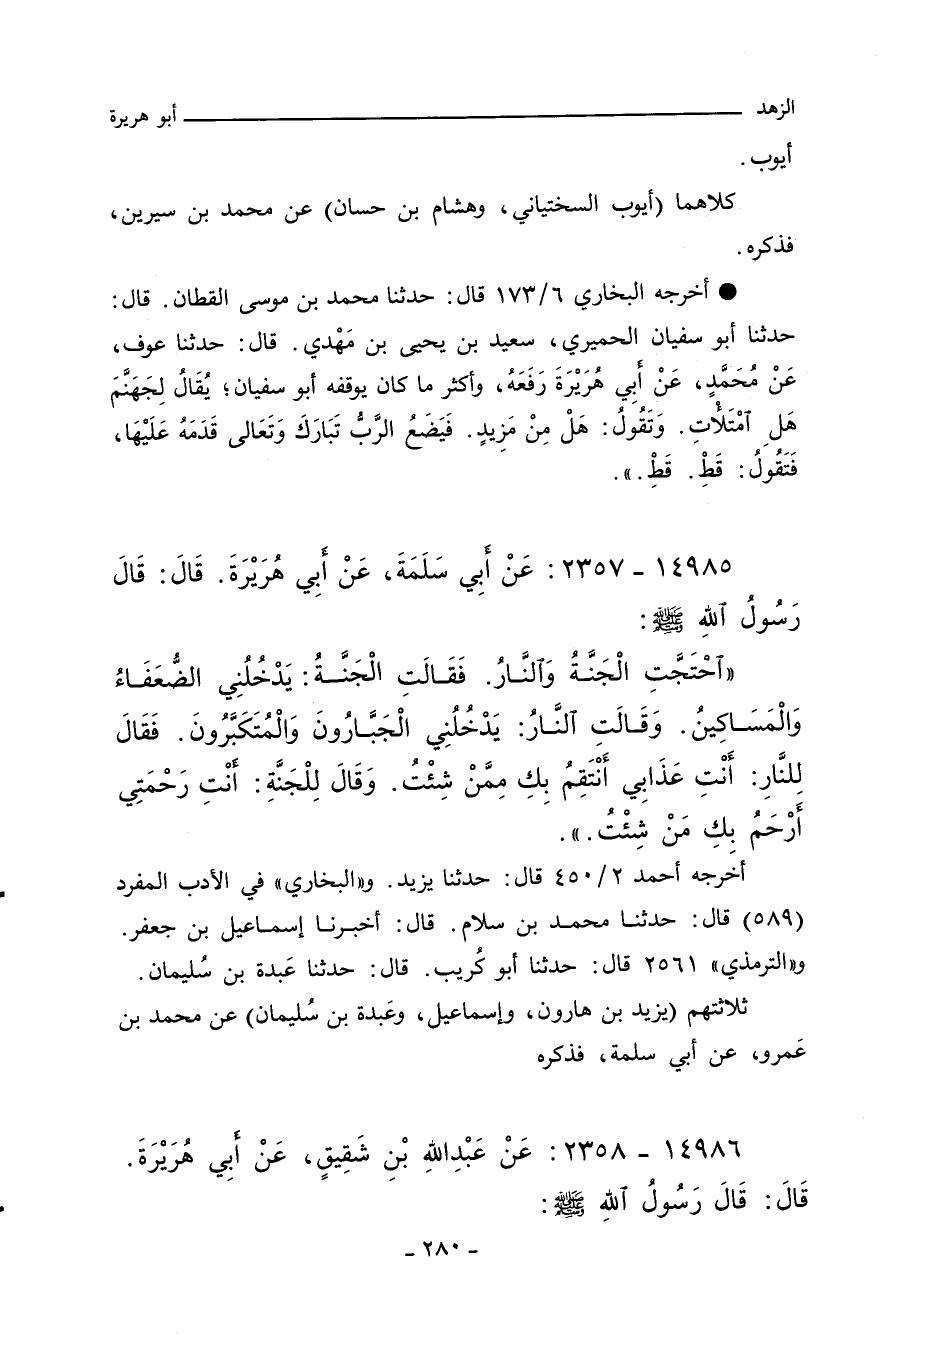 الزهد ــــــ أبو هريرة
أيوب.
كلاهما (أيوب السختياني، وهشام بن حسان) عن محمد بن سيرين،
فذكره.
● أخرجه البخاري ٦/١٧٣ قال: حدثنا محمد بن موسى القطان. قال:
حدثنا أبو سفيان الحميري، سعيد بن يحيى بن مَهْدي. قال: حدثنا عوف،
عَنْ مُحَمَّدٍ، عَنْ أَبِي هُرَيْرَةَ رَفَعَهُ، وأكثر ما كان يوقفه أبو سفيان؛ يُقَالُ لِجَهَنَّمَ
هَلِ ٱمْتَلَأْتِ. وَتَقُولُ: هَلْ مِنْ مَزِيدٍ. فَيَضَعُ الرَّبُّ تَبَارَكَ وَتَعَالى قَدَمَهُ عَلَيْهَا،
فَتَقُولُ: قَطْ. قَطْ.».
١٤٩٨٥ - ٢٣٥٧: عَنْ أَبِي سَلَمَةَ، عَنْ أَبِي هُرَيْرَةَ. قَالَ: قَالَ
رَسُولُ ٱللهِ ﷺ:
«ٱحْتَجَّتِ الْجَنَّةُ وَٱلنَّارُ. فَقَالَتِ الْجَنَّةُ: يَدْخُلُنِي الضُّعَفَاءُ
وَالْمَسَاكِينُ. وَقَالَتِ ٱلنَّارُ: يَدْخُلُنِي الْجَبَّارُونَ وَالْمُتَكَبَّرُونَ. فَقَالَ
لِلنَّارِ: أَنْتِ عَذَابِي أَنْتَقِمُ بِكِ مِمَّنْ شِئْتُ. وَقَالَ لِلْجَنَّةِ: أَنْتِ رَحْمَتِي
أَرْحَمُ بِكِ مَنْ شِئْتُ.».
أخرجه أحمد ٢/٤٥٠ قال: حدثنا يزيد. و«البخاري» في الأدب المفرد
(٥٨٩) قال: حدثنا محمد بن سلام. قال: أخبرنا إسماعيل بن جعفر.
و«الترمذي» ٢٥٦١ قال: حدثنا أبو كُريب. قال: حدثنا عَبدة بن سُليمان.
ثلاثتهم (يزيد بن هارون، وإسماعيل، وعَبدة بن سُليمان) عن محمد بن
عَمرو، عن أبي سلمة، فذكره
١٤٩٨٦ - ٢٣٥٨: عَنْ عَبْدِاللهِ بْنِ شَقِيقٍ، عَنْ أَبِي هُرَيْرَةَ.
قَالَ: قَالَ رَسُولُ ٱللهِ ﷺ:
- ٢٨٠ -